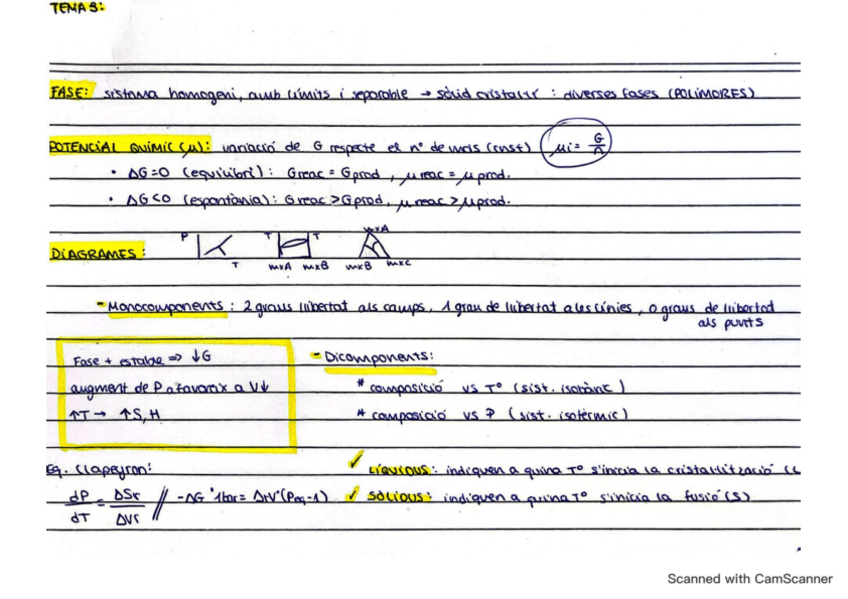 TEMA 3:
FASE: sistema homogeni, amb límits i separable → sòlid cristal·lí : diverses fases (POLIMORFS)
POTENCIAL QUÍMIC (μ): variació de G respecte el nº de mols (const) μi = G/
• ΔG=0 (equilibri): Greac = Gprod, μ reac = μ prod.
• ΔG<0 (espontània): Greac > Gprod, μ reac > μ prod.
DIAGRAMES: P T T T mxA mxB mxA mxB mxC
- Monocomponents: 2 graus llibertat als camps, 1 grau de llibertat a les línies, 0 graus de llibertat
als punts
Fase + estable => ↓G
augment de P afavoreix a V↓
↑T → ↑S, H
- Dicomponents:
* composició vs Tº (sist. isobàric)
* composició vs P (sist. isotèrmic)
Eq. Clapeyron:
dP/dT = ΔSr/ΔVr // -ΔG º1bar = ΔrVº(Peq-1)
✓ LÍQUIDUS: indiquen a quina Tº s'inicia la cristal·lització (L
✓ SÒLIDUS: indiquen a quina Tº s'inicia la fusió (S)
Scanned with CamScanner